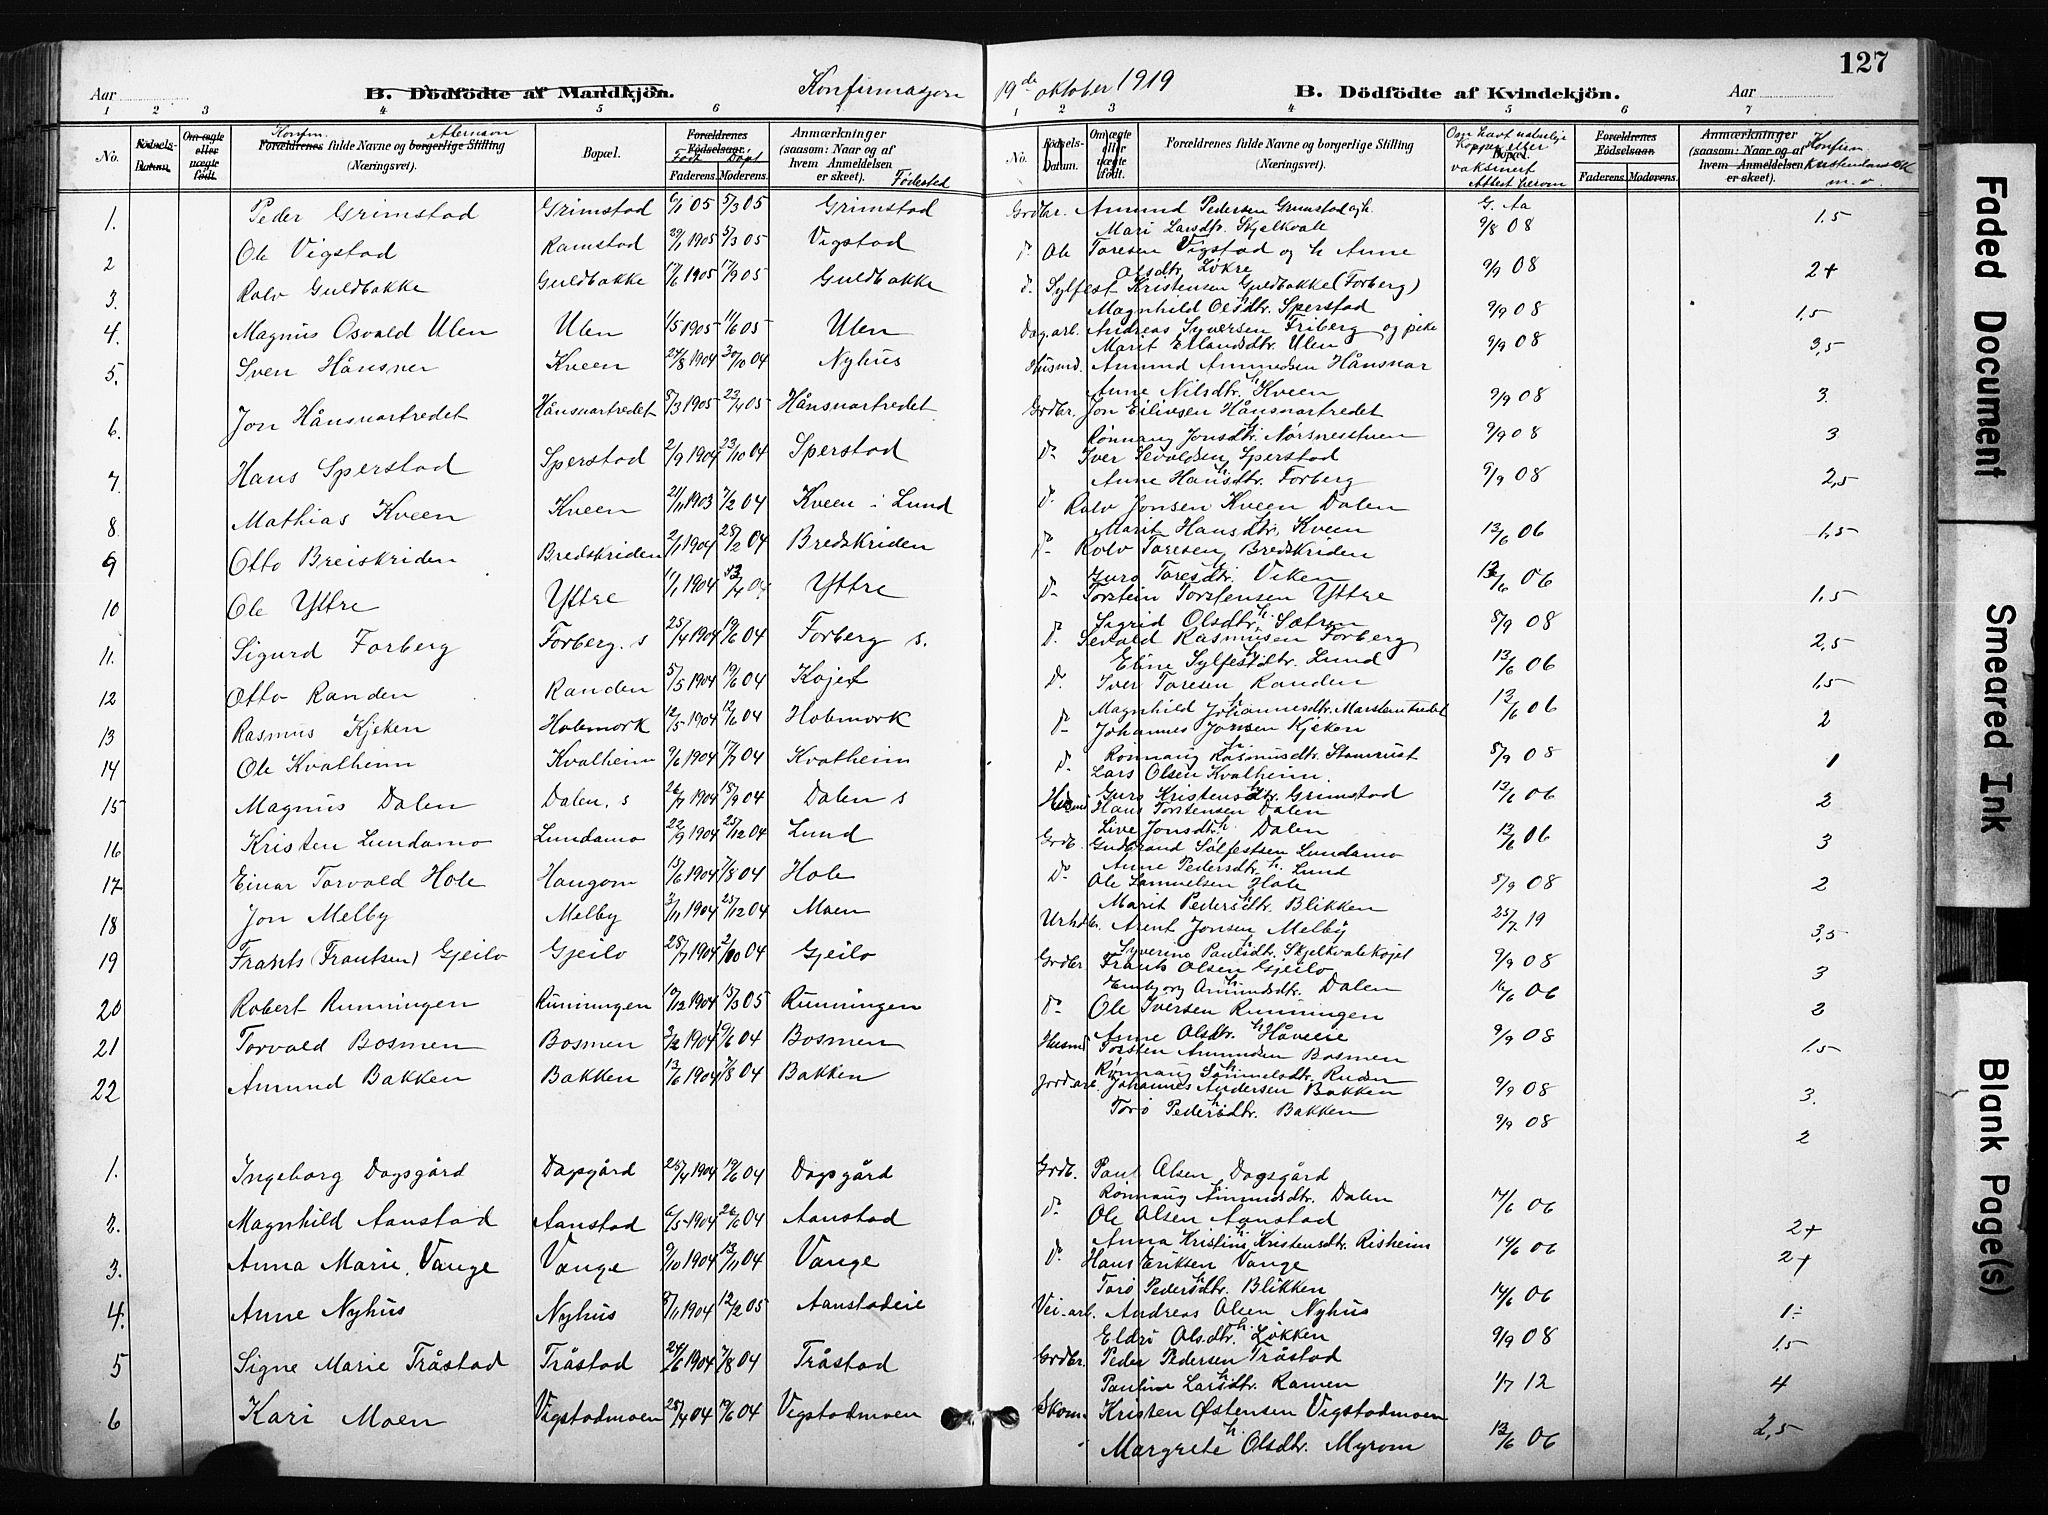 127
Aar B. Dödfödte af Mandkjön. Konfirmasjon 19de oktober 1919 B. Dödfödte af Kvindekjön. Aar
1 2 3 4 5 6 7 1 2 3 4 5 6 7
No. Födsels-Datum. Om ægte eller uægte födt. Konfirm. Forældrenes fulde Navne og Etternavn borgerlige Stilling (Næringsvei). Bopæl. Forældrenes Födselsaar. Født Døpt Faderens. Moderens. Anmærkninger (saasom: Naar og af hvem Anmeldelsen er skeet). Fødested
No. Födsels-Datum. Om ægte eller uægte födt. Forældrenes fulde Navne og borgerlige Stilling (Næringsvei). Bopæl. Om havt naturlige kopper eller vaksinert Attest herom Forældrenes Födselsaar. Faderens. Moderens. Anmærkninger (saasom: Naar og af hvem Anmeldelsen er skeet). Konfirm. m.v.
1. Peder Grimstad Grimstad 6/1 05 5/3 05 Grimstad Grdbr. Amund Pedersen Grimstad og h. G. Aa 1,5
Mari Larsdtr. Skjelkvale 9/8 08
2 Ole Vigstad Ramstad 29/1 1905 5/3 05 Vigstad D. Ole Toresen Vigstad og h Anne
Olsdtr. Løkre 9/9 08 2+
3. Rolv Guldbakke Guldbakke 17/6 1905 17/9 05 Guldbakke D. Sylfest Kristensen Guldbakke (Forberg)
Magnhild Olsdtr. Sperstad 9/9 08 1,5
4. Magnus Osvald Ulen Ulen 1/5 1905 11/6 05 Ulen Dag.arb. Andreas Syversen Friberg og pike
Marit Erlandsdtr. Ulen 9/9 08 3,5
5. Sven Hånsner Kveen 27/8 1904 30/10 04 Nyhus Husmd. Amund Amundsen Hånsnar
Anne Nilsdtr. Kveen 9/9 08 3.
6. Jon Hånsnartredet Hånsnartredet 8/3 1905 23/4 05 Hånsnartredet Grdbr. Jon Eilivsen Hånsnartredet
Rønnaug Jonsdtr. Nørsnesstuen 9/9 08 3
7. Hans Sperstad Sperstad 2/9 1904 23/10 04 Sperstad D. Iver Sevaldsen Sperstad
Anne Hansdtr. Forberg 9/9 08 2,5
8 Mathias Kveen Kveen 21/11 1903 7/2 04 Kveen i Lund D. Rolv Jonsen Kveen Dalen
Marit Hansdtr. Kveen 13/6 06 1,5
9 Otto Breiskriden Bredskriden 2/1 1904 28/2 04 Bredskriden D. Rolv Toresen Bredskriden
Guro Toresdtr. Viken 13/6 06 1,5
10 Ole Yttre Yttre 11/1 1904 Yttre D. Torstein Torstensen Yttre
Sigrid Olsdtr. Sætren 8/9 08 2,5
11. Sigurd Forberg Forberg. s 25/4 1904 19/6 04 Forberg s. D. Sevald Rasmusen Forberg
Eline Sylfestdtr. Lund 13/6 06 1,5
12 Otto Randen Randen 5/5 1904 19/6 04 Køjet D. Iver Toresen Randen
Magnhild Johannesdtr. Marstentredet 13/6 06 2
13 Rasmus Kjeken Holemork 12/5 1904 12/6 04 Holemork D. Johannes Jonsen Kjeken
Rønnaug Rasmusdtr. Stamrust 8/9 08 1
14 Ole Kvalheim Kvalheim 9/6 1904 17/7 04 Kvalheim D. Lars Olsen Kvalheim.
Guro Kristensdtr. Grimstad 13/6 06 2
15 Magnus Dalen Dalen. s 26/7 1904 18/9 04 Dalen s Husmd Hans Torstensen Dalen
Live Jonsdtr. Dalen 13/6 06 3
16 Kristen Lundamo Lundamo 22/9 1904 25/12 04 Lund Grdb. Gudbrand Sølfestsen Lundamo
Anne Pedersdtr. h. Lund 8/9 08 2
17 Einar Torvald Hole Haugom 13/6 1904 7/8 04 Hole D. Ole Samuelsen Hole
Marit Pedersdtr. Blikken 25/7 19 3,5
18 Jon Melby Melby 3/11 1904 25/12 04 Moen Urhdl. Arent Jonsen Melby
Syverine Paulsdtr. Skjelkvalekøjet 9/9 08 3
19 Frants (Frantsen) Gjeilo Gjeilo 28/7 1904 2/10 04 Gjeilo Grdbr Frants Olsen Gjeilo
Embjørg Amundsdtr. Dalen 16/6 06 2
20 Robert Runningen Runningen 10/12 1904 15/3 05 Runningen D. Ole Iversen Runningen
Anne Olsdtr. Håveie 9/9 08 1.5
21 Torvald Bosmen Bosmen 3/2 1904 19/6 04 Bosmen Husmd Torsten Amundsen Bosmen
Rønnaug Sammelsdtr. Ruden 9/9 08 3.
22 Amund Bakken Bakken 13/6 1904 7/8 04 Bakken Jordarb. Johannes Andersen Bakken
Torø Pedersdtr. Bakken 9/9 08 2
1. Ingeborg Dagsgård Dagsgård 25/4 1904 19/6 04 Dagsgård Grdb. Paul Olsen Dagsgård
Rønnaug Amundsdtr. Dalen 14/6 06 2+
2. Magnhild Aanstad Aanstad 6/5 1904 26/6 04 Aanstad D. Ole Olsen Aanstad
Anna Kristine Kristensdtr. Risheim 14/6 06 2+
3. Anna Marie Vange Vange 9/10 1904 13/11 04 Vange D. Hans Eriksen Vange
Torø Pedersdtr. Blikken 14/6 06 1-
4. Anne Nyhus Nyhus 8/11 1904 12/2 05 Aanstadeie Vei.arb. Andreas Olsen Nyhus
Eldri Olsdtr. Løkken 9/9 08 1.5
5 Signe Marie Tråstad Tråstad 24/6 1904 7/8 04 Tråstad Grdbr. Peder Pedersen Tråstad
Pauline Larsdtr. Ramen 1/7 12 4
6 Kari Moen Vigstadmoen 28/4 04 19/6 04 Vigstadmoen Skom. Kristen Østensen Vigstadmoen
Margrete Olsdtr. Myrom 13/6 06 2,5
Faded Document
Smeared Ink
Blank Page(s)